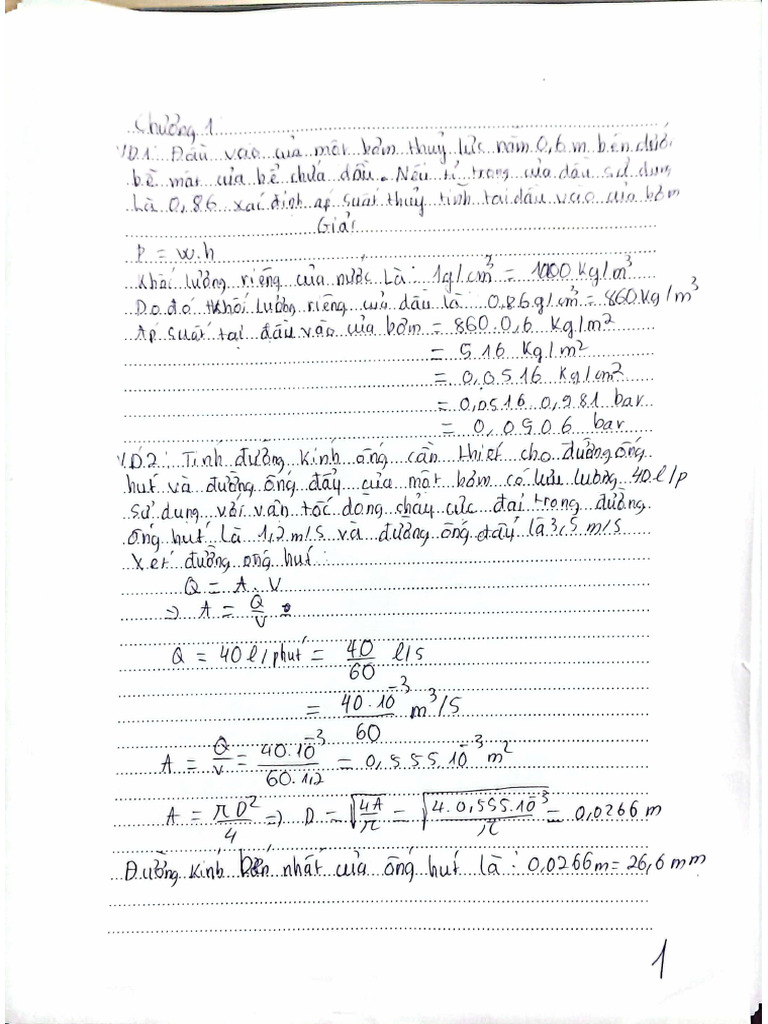 Chương 1
VD1: Đầu vào của một bơm thuỷ lực nằm 0,6 m bên dưới
bề mặt của bể chứa dầu. Nếu tỉ trọng của dầu sử dụng
là 0,86 xác định áp suất thuỷ tĩnh tại đầu vào của bơm
Giải
P = w.h
Khối lượng riêng của nước là: 1g/cm³ = 1000 Kg/m³
Do đó khối lượng riêng của dầu là 0,86g/cm³ = 860Kg/m³
Áp suất tại đầu vào của bơm = 860.0,6 Kg/m²
= 516 Kg/m²
= 0,0516 Kg/cm²
= 0,0516.0,981 bar
= 0,0506 bar
VD2: Tính đường kính ống cần thiết cho đường ống
hút và đường ống đẩy của một bơm có lưu lượng 40l/p
sử dụng với vận tốc dòng chảy cực đại trong đường
ống hút là 1,2m/s và đường ống đẩy là 3,5 m/s
Xét đường ống hút:
Q = A.V
=> A = Q/V =
Q = 40l/phút = 40/60 l/s
= 40.10⁻³/60 m³/s
A = Q/V = 40.10⁻³/60.1,2 = 0,555.10⁻³ m²
A = πD²/4 => D = √4A/π = √4.0,555.10⁻³/π = 0,0266 m
Đường kính bén nhất của ống hút là: 0,0266m = 26,6 mm
1